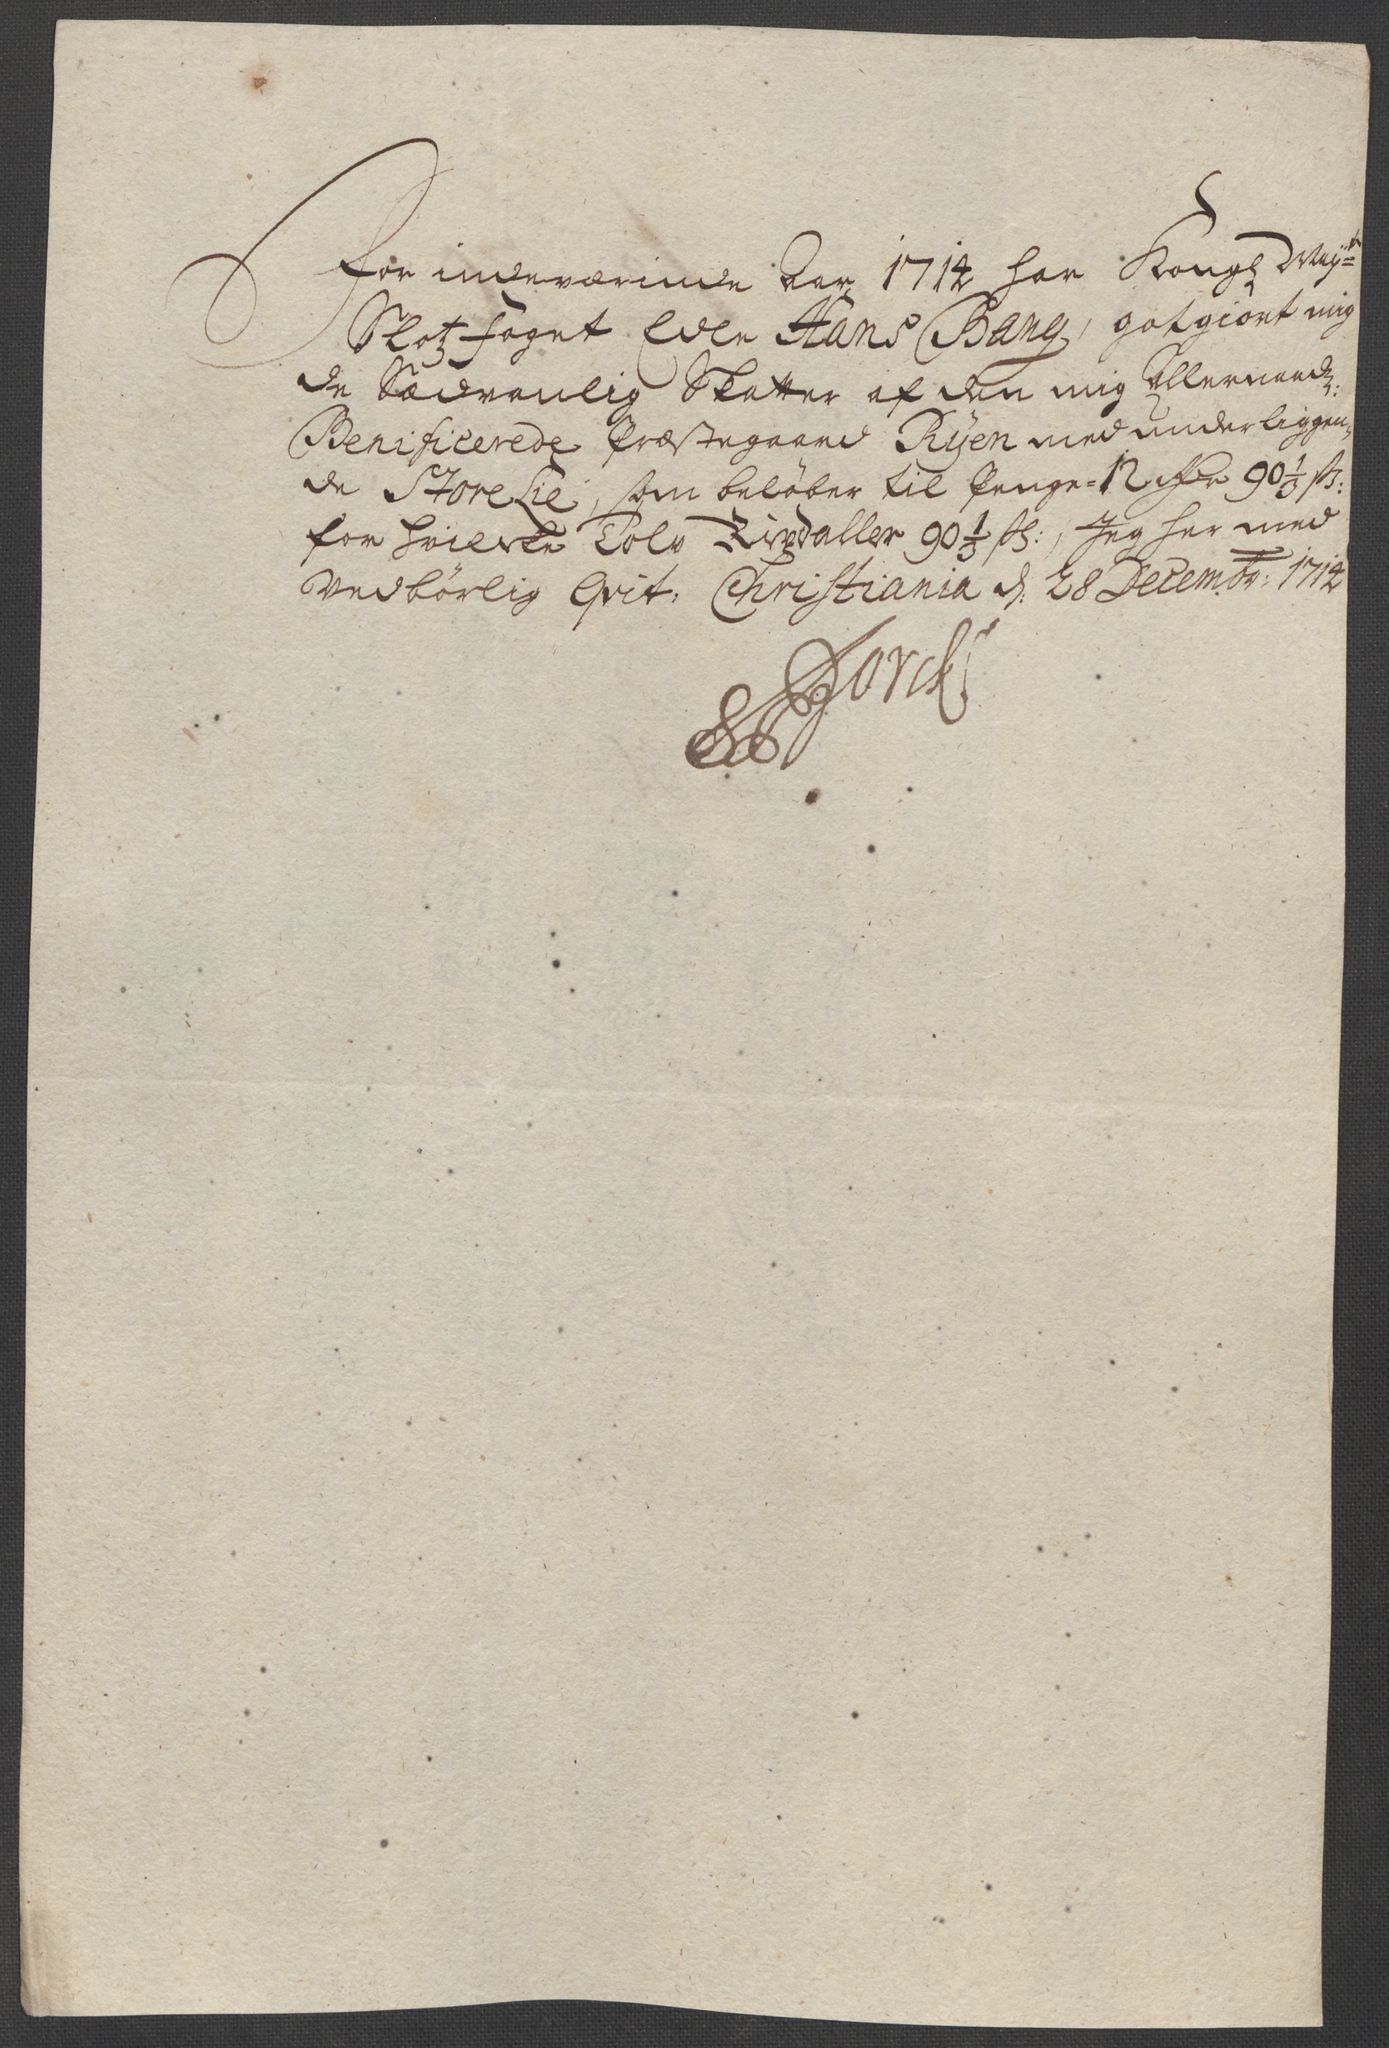 For indeværende Aar 1714 har Kongl May:ts
Slotz foget Edle Hans Bang, gotgiort mig
de Sædvanlig Skatter af den mig Allernaadl:
Benificerede Præstegaard Ryen med underliggen-
de Store Lie, som beløber til Penge = 12 Rdr 90 1/3 ß:
for hvilcke Tolv Rixdaller 90 1/3 ß:, Jeg her med
vedbörlig Qvit: Christiania d: 28 Decembr: 1714
Jorck